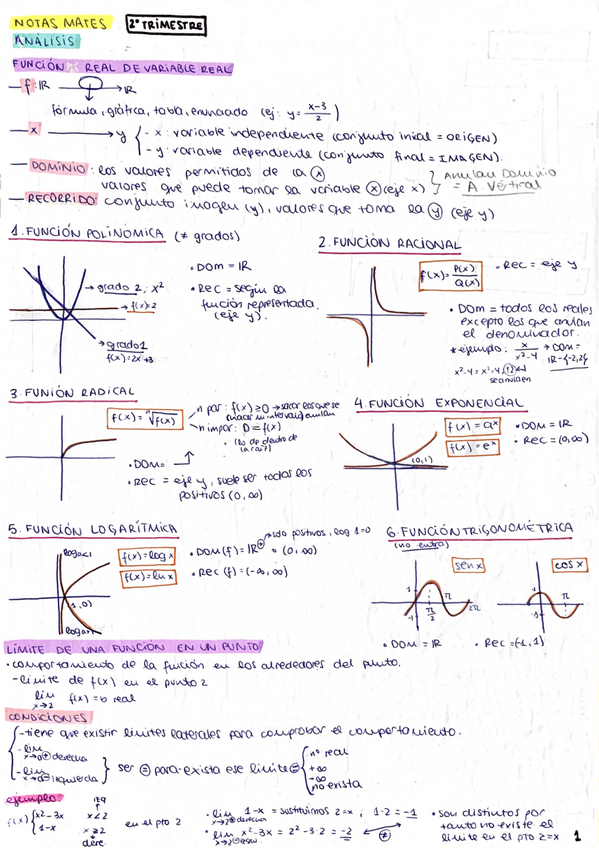 NOTAS MATES 2º TRIMESTRE
ANÁLISIS
FUNCIÓN REAL DE VARIABLE REAL
— f: IR → IR
fórmula, gráfica, tabla, enunciado (ej: y = x-3/2)
— x → y { - x: variable independiente (conjunto inicial = ORIGEN)
- y: variable dependiente (conjunto final = IMAGEN).
— DOMINIO: los valores permitidos de la x
valores que puede tomar la variable x (eje x) } Anulan Dominio = A. Vertical
— RECORRIDO: conjunto imagen (y), valores que toma la y (eje y)
1. FUNCIÓN POLINÓMICA (≠ grados)
→ grado 2, x²
→ f(x)=2
→ grado 1
f(x)=2x+3
• DOM = IR
• REC = según la
función representada.
(eje y).
2. FUNCIÓN RACIONAL
f(x)= P(x)/Q(x)
• REC = eje y
• DOM = todos los reales
excepto los que anulan
el denominador.
* ejemplo: x/x²-4 → DOM =
IR-{-2,2}
x²-4 = x²-4
se anulen
3. FUNIÓN RADICAL
f(x) = ⁿ√f(x)
n par: f(x) ≥ 0 → sacar los que se
n impar: D = f(x)
(lo de dentro de
la raíz)
• DOM =
• REC = eje y, suele ser todos los
positivos (0, ∞)
4. FUNCIÓN EXPONENCIAL
f(x) = aˣ
f(x) = eˣ
(0,1)
• DOM = IR
• REC = (0, ∞)
5. FUNCIÓN LOGARÍTMICA
log a<1
(1,0)
log a>1
f(x) = log x
f(x) = ln x
→ solo positivos, log 1=0
• DOM (f) = IR⁺ = (0, ∞)
• REC (f) = (-∞, ∞)
6. FUNCIÓN TRIGONOMÉTRICA
(no entra)
sen x
1
π/2
π
2π
cos x
1
-1
π
• DOM = IR
• REC = (-1, 1)
LÍMITE DE UNA FUNCIÓN EN UN PUNTO
• comportamiento de la función en los alrededores del punto.
- límite de f(x) en el punto 2
lim x→2 f(x) = b real
CONDICIONES
- tiene que existir límites laterales para comprobar el comportamiento.
- lim x→a⁺ derecha
- lim x→a⁻ izquierda } ser = para exista ese límite = { nº real
+∞
-∞
no exista
ejemplo:
izq
f(x) { x²-3x x<2
1-x x≥2
dere
en el pto 2
• lim x→2⁺ derecha 1-x = sustituimos 2=x; 1-2 = -1
• lim x→2⁻ izqu. x²-3x = 2²-3·2 = -2 ← ≠
• son distintos por
tanto no existe el
límite en el pto 2=x
1